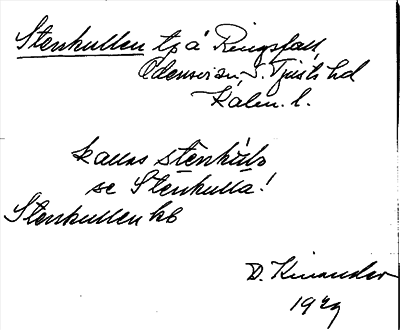 Stenkullen tp å Ringsfall,
Odensvi sn, S. Tjusts hd
Kalm. l.
kallas
se Stenkulla!
Stenkullen hb
D. Kinander
1929